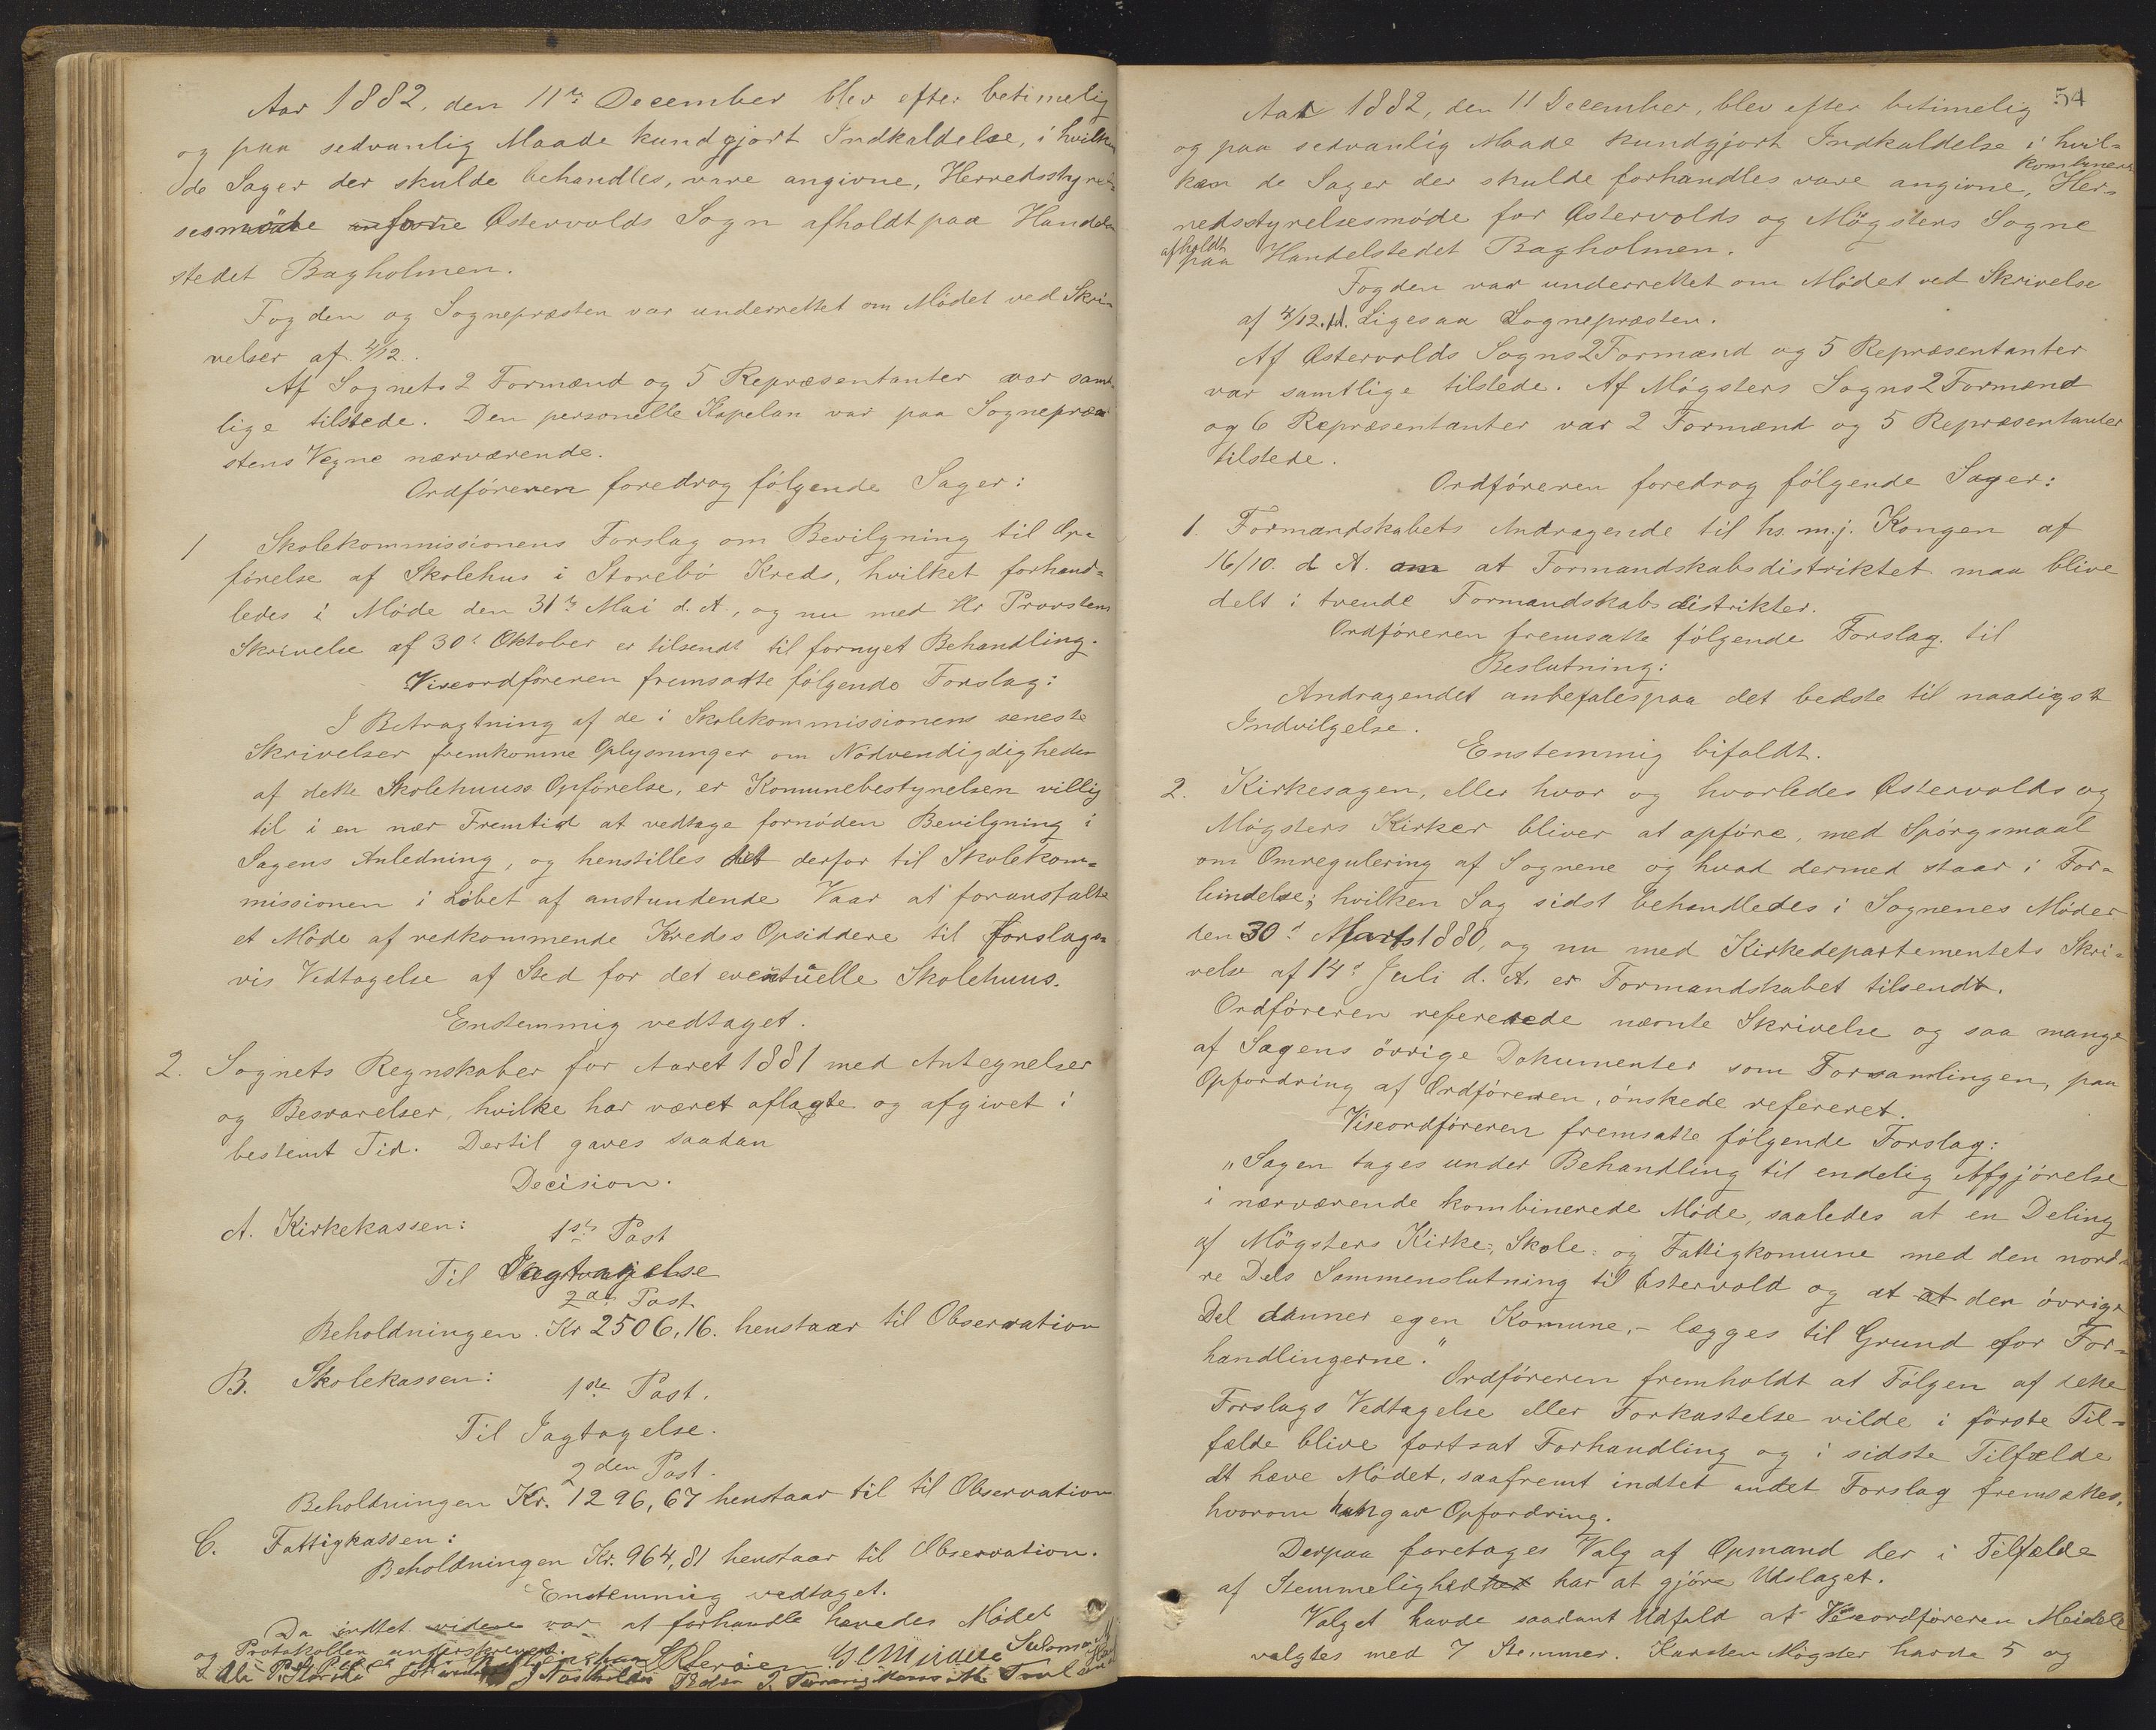 Aar 1882, den 11te December blev efter betimelig
og paa sedvanlig Maade kundgjort Indkaldelse, i hvilken
de Sager der skulde behandles, vare angivne, Herredsstyrel-
sesmøde Østervolds Sogn afholdt paa Handels-
stedet Bagholmen.
Fogden og Sognepræsten var underrettet om Mødet ved Skri-
velser af 4/12.
Af Sognets 2 Formænd og 5 Repræsentanter var samt-
lige tilstede. Den personelle Kapelan var paa Sognepræ-
stens Vegne nærværende.
Ordføreren foredrog følgende Sager:
1 Skolekommissionens Forslag om Bevilgning til Op-
førelse af Skolehus i Storebø Kreds, hvilket forhand-
ledes i Møde den 31te Mai d. A., og nu med Hr Provstens
Skrivelse af 30t Oktober er tilsendt til fornyet Behandling.
Viseordføreren fremsadte følgende Forslag:
I Betragtning af de i Skolekommissionens seneste
Skrivelser fremkomne Oplysninger om Nødvendigdigheden
af dette Skolehuuss Opførelse, er Komunebestyrelsen villig
til i en nær Fremtid at vedtage fornøden Bevilgning i
Sagens Anledning, og henstilles det derfor til Skolekom-
missionen i Løbet af anstundende Vaar at foranstalte
et Møde af vedkommende Kredss Opsiddere til Forslags-
vis Vedtagelse af Sted for det eventuelle Skolehuus.
Enstemmig vedtaget.
2. Sognets Regnskaber for Aaret 1881 med Antegnelser
og Besvarelser, hvilke har været aflagte og afgivet i
bestemt Tid. Dertil gaves saadan
Decision.
A. Kirkekassen:
1ste Post
Til Iagtagelse
2den Post
Beholdningen Kr 2506,16. henstaar til Observation
B. Skolekassen:
1ste Post.
Til Iagtagelse.
2den Post.
Beholdningen Kr. 1296,67 henstaar til til Observation
C. Fattigkassen:
Beholdningen Kr. 964,81 henstaar til Observation.
Enstemmig vedtaget.
Da indtet videre var at forhandle hævedes Mødet
og Protokollen underskrevet.
54
Aar 1882, den 11 December, blev efter betimelig
og paa sedvanlig Maade kundgjort Indkaldelse i hvil-
ken de Sager der skulde forhandles vare angivne, kombineret Her-
redsstyrelsesmøde for Østervolds og Møgsters Sogne
afholdt paa Handelstedet Bagholmen.
Fogden var underrettet om Mødet ved Skrivelse
af 4/12. Ligesaa Sognepræsten.
Af Østervolds Sogns 2 Formænd og 5 Repræsentanter
var samtlige tilstede. Af Møgsters Sogns 2 Formænd
og 6 Repræsentanter var 2 Formænd og 5 Repræsentanter
tilstede.
Ordføreren foredrog følgende Sager:
1. Formandskabets Andragende til hs. m.j. Kongen af
16/10. d A. om at Formandskabsdistriktet maa blive
delt i tvende Formandskabsdistrikter.
Ordføreren fremsatte følgende Forslag til
Beslutning:
Andragendet anbefales paa det bedste til naadigst
Indvilgelse.
Enstemmig bifaldt.
2. Kirkesagen, eller hvor og hvorledes Østervolds og
Møgsters Kirker bliver at opføre, med Spørgsmaal
om Omregulering af Sognene og hvad dermed staar i For-
bindelse; hvilken Sag sidst behandledes i Sognenes Møder
den 30t Marts 1880, og nu med Kirkedepartementets Skri-
velse af 14de Juli d. A. er Formandskabet tilsendt.
Ordføreren refererede nævnte Skrivelse og saa mange
af Sagens øvrige Dokumenter som Forsamlingen, paa
Opfordring af Ordføreren, ønskede refereret.
Viseordføreren fremsatte følgende Forslag:
"Sagen tages under Behandling til endelig Afgjørelse
i nærværende kombinerede Møde, saaledes at en Deling
af Møgsters Kirke-, Skole- og Fattigkomune med den nord-
re Dels Sammenslutning til Østervold og at at den øvrige
Del danner egen Komune, - lægges til Grund for For-
handlingerne."
Ordføreren fremholdt at Følgen af dette
Forslags Vedtagelse eller Forkastelse vilde i første Til-
fælde blive fortsat Forhandling og i sidste Tilfælde
at hæve Mødet, saafremt indtet andet Forslag fremsættes,
hvorom han gav Opfordring.
Derpaa foretages Valg af Opmand der i Tilfælde
af Stemmelighed har at gjøre Udslaget.
Valget havde saadant Udfald at Viseordføreren Meidell
valgtes med 7 Stemmer. Karsten Møgster havde 5 og